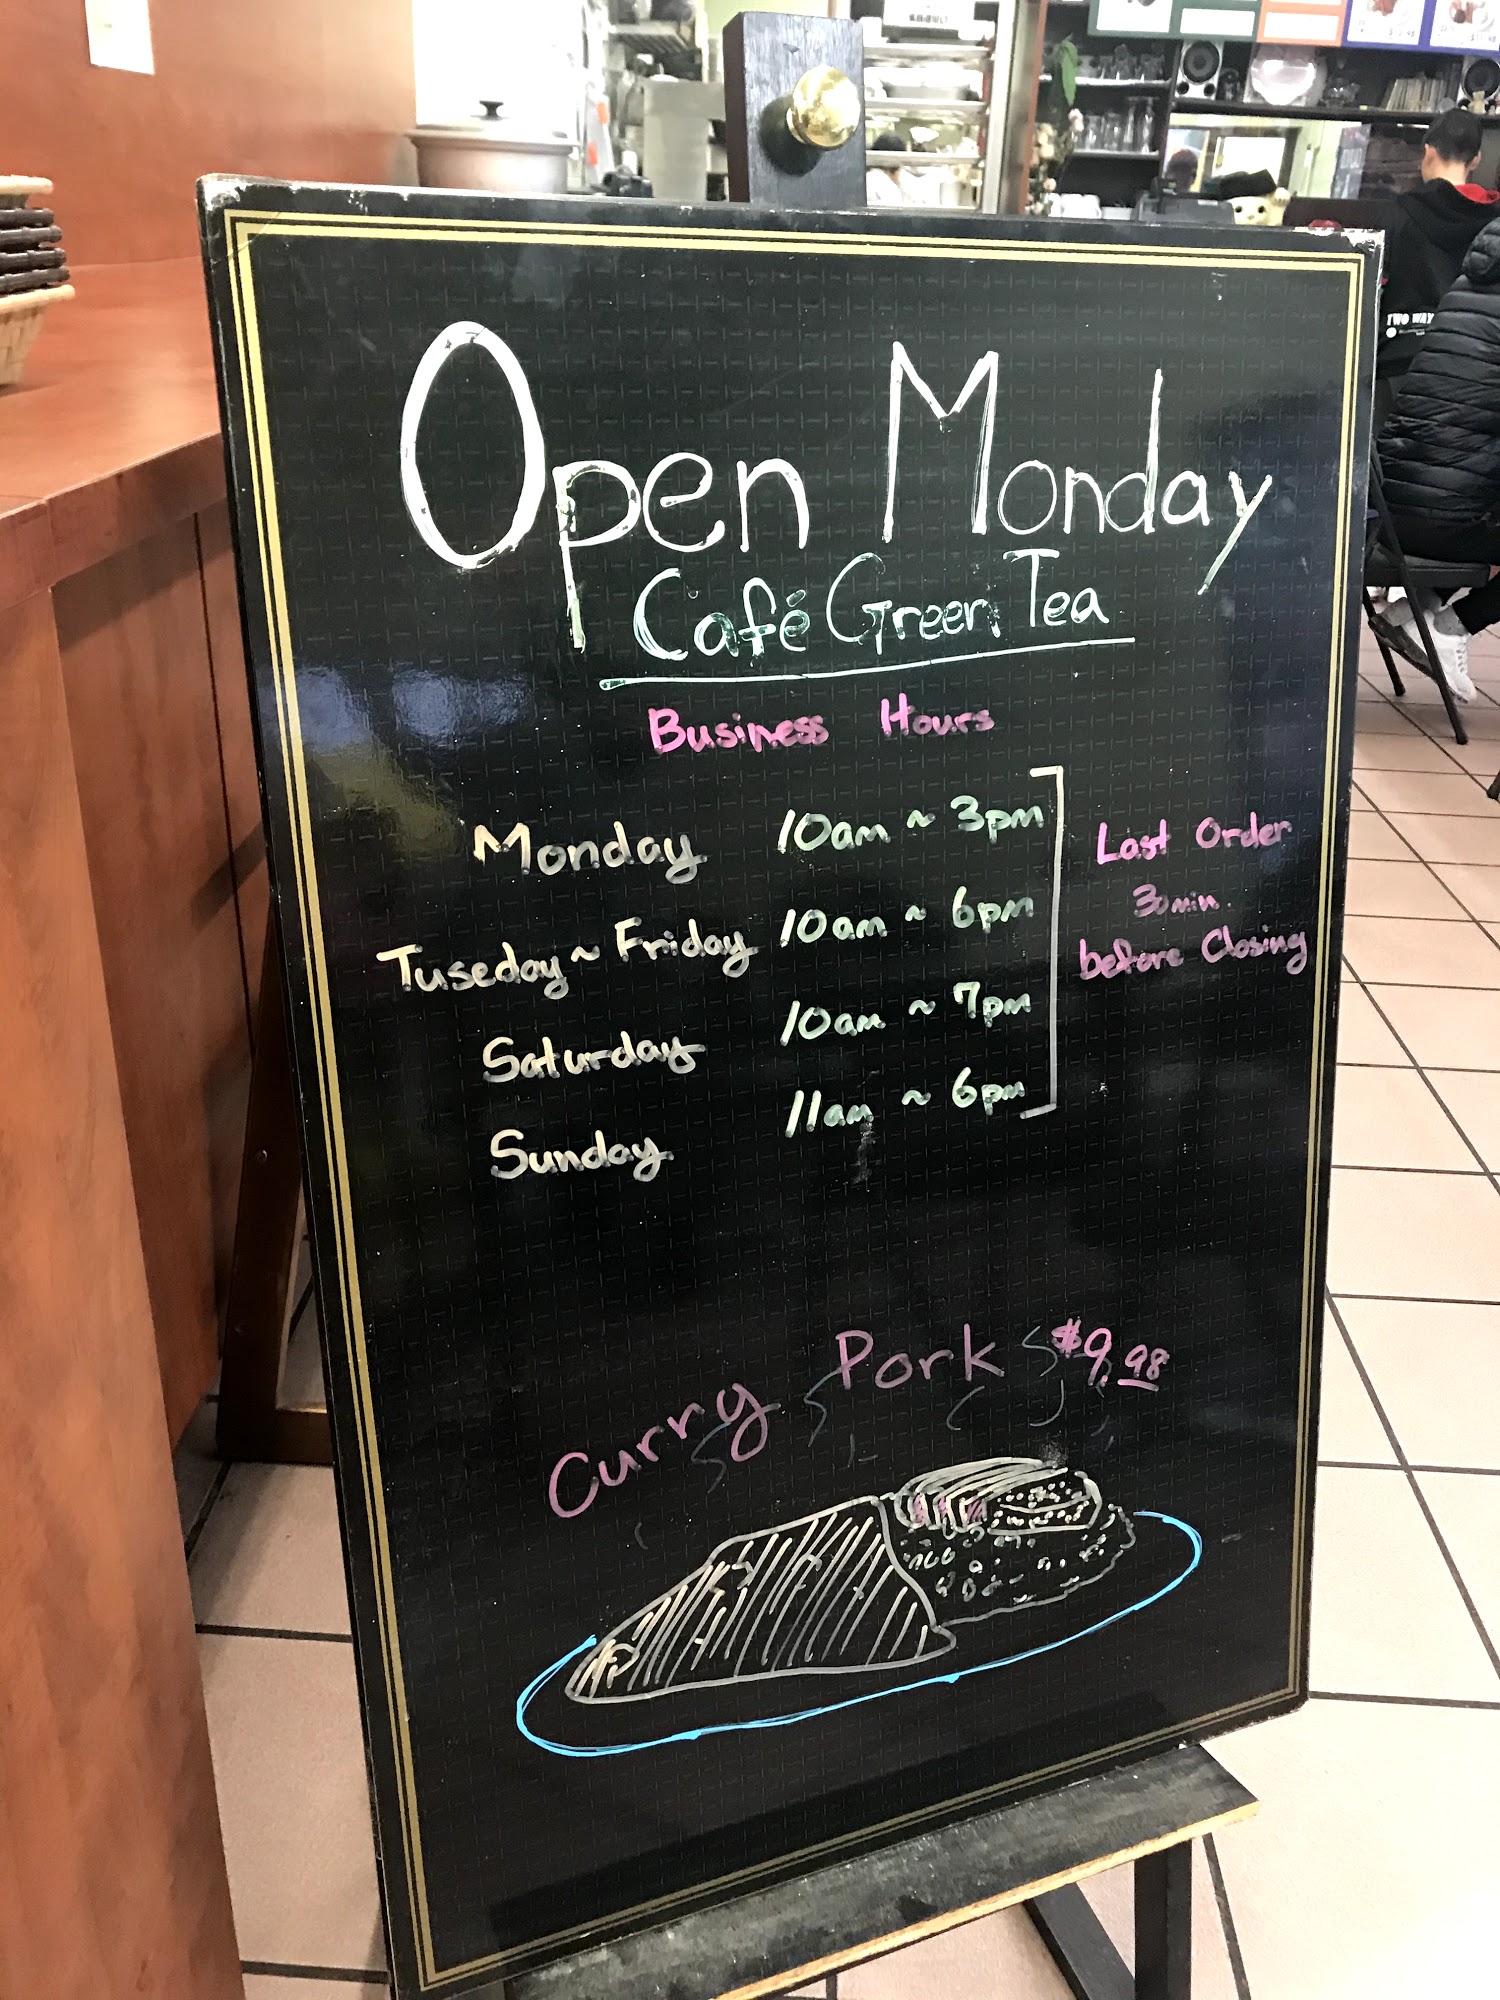 Open Monday
Café Green Tea
Business Hours
Monday 10am ~ 3pm
Tuseday ~ Friday 10am ~ 6pm
Saturday 10am ~ 7pm
Sunday 11am ~ 6pm
Last Order
30min.
before Closing
Curry Pork $9.98
TWO WAY